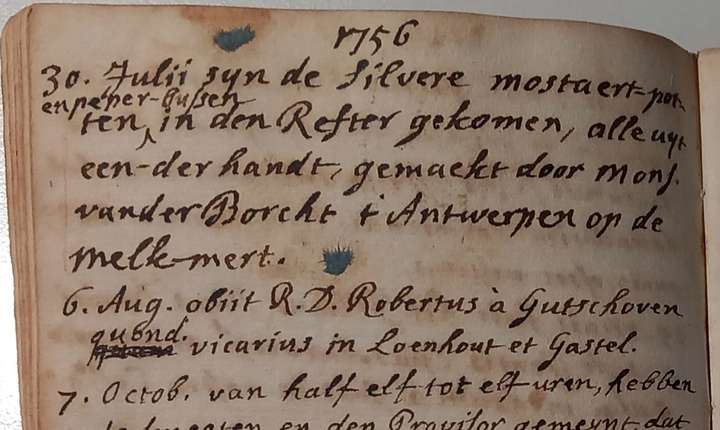 1756
30. Julii syn de silvere mostaert-pot-
en peper-bussen
ten, in den Refter gekomen, alle uyt
een-der handt, gemaekt door Mons.
vander Borcht t'Antwerpen op de
melk-mert.
6. Aug. obiit R. D. Robertus à Gutschoven
quond.
vicarius in Loenhout et Gastel.
7. Octob. van half elf tot elf uren, hebben
en den Provisor gemeynt dat